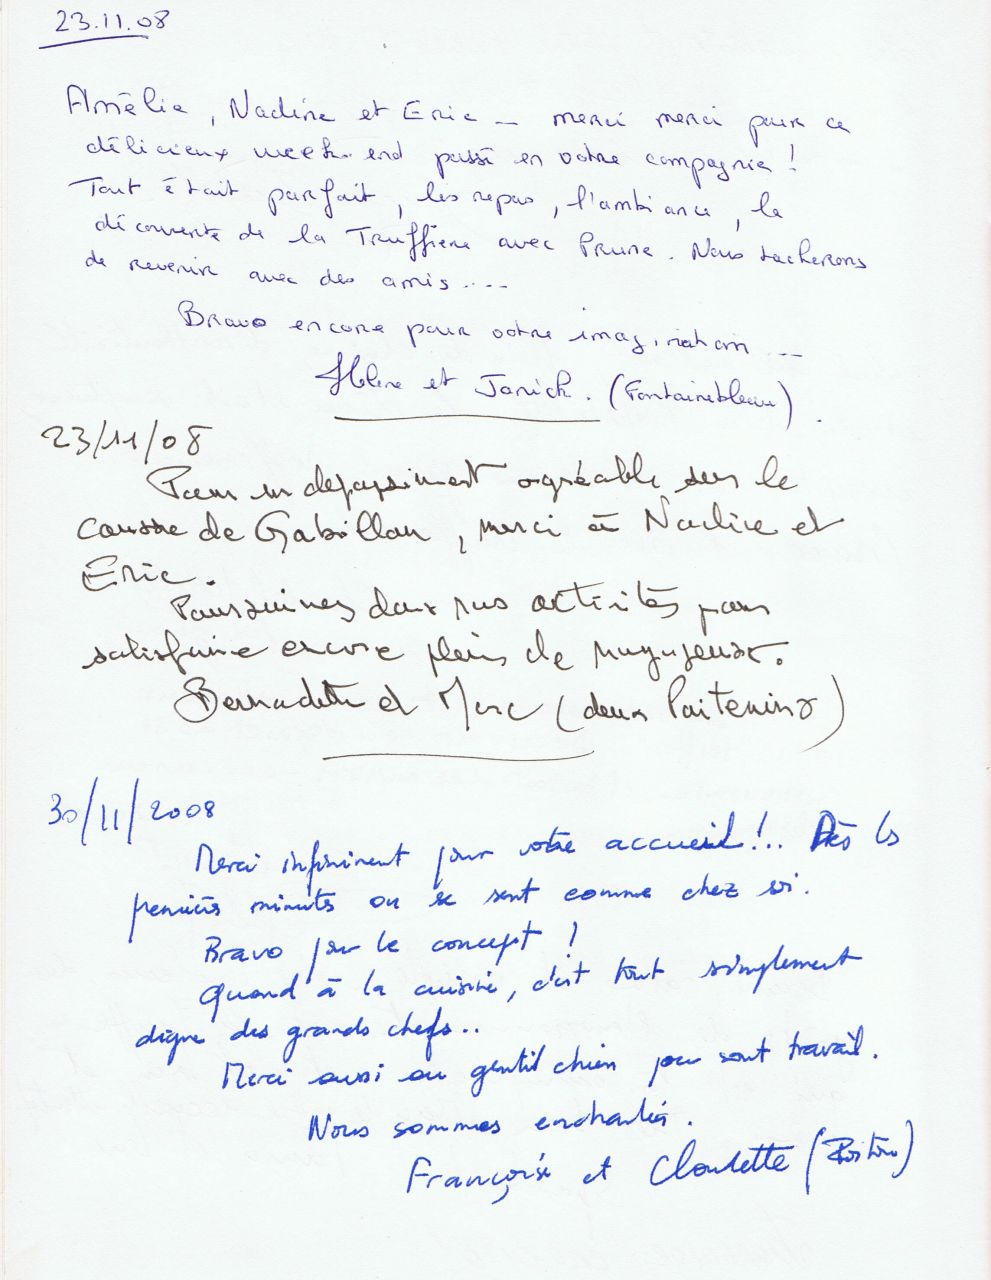 23.11.08
Amélie, Nadine et Eric _ merci merci pour ce
délicieux week-end passé en votre compagnie !
Tout était parfait, les repas, l'ambiance, la
découverte de la Truffière avec Prune. Nous tacherons
de revenir avec des amis ....
Bravo encore pour votre imagination ...
Hélène et Janick. (Fontainebleau).
23/11/08
Pour un depaysement agréable sur le
causse de Gabillou, merci à Nadine et
Eric.
Poursuivez dans vos activités pour
satisfaire encore pleins de voyageurs.
Bernadette et Marc (deux Poitevins)
30/11/2008
Merci infiniment pour votre accueil !.. Dès les
premières minutes on se sent comme chez soi.
Bravo pour le concept !
Quand à la cuisine, c'est tout simplement
digne des grands chefs..
Merci aussi au gentil chien pour sont travail.
Nous sommes enchantés.
Françoise et Claudette (Poitou)